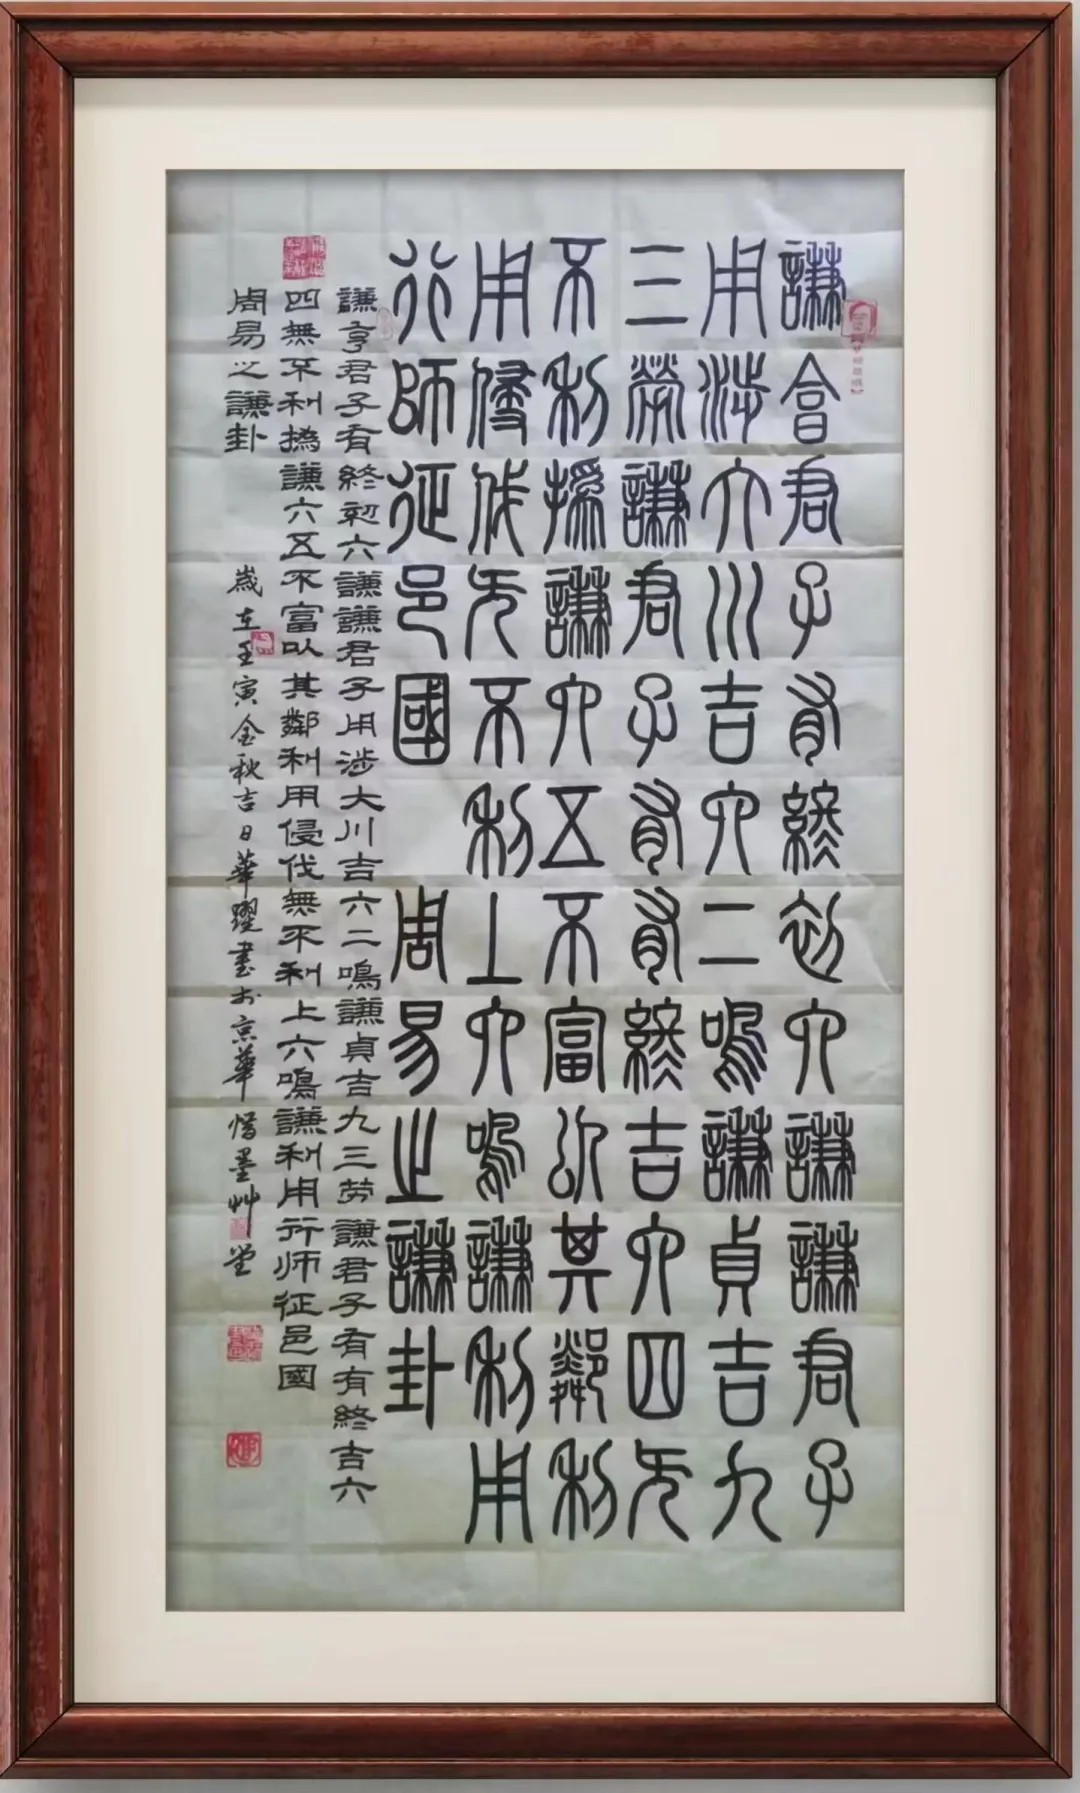 謙亯君子有終初六謙謙君子
用涉大川吉六二鳴謙貞吉九
三勞謙君子有有終吉六四无
不利撝謙六五不富㠯其鄰利
用侵伐无不利上六鳴謙利用
行師征邑國 周易之謙卦
謙亨君子有終初六謙謙君子用涉大川吉六二鳴謙貞吉九三劳謙君子有有終吉六
四無不利撝謙六五不富以其鄰利用侵伐無不利上六鳴謙利用行师征邑國
周易之謙卦
歲在壬寅金秋吉日華躍書於京華惜墨艸堂